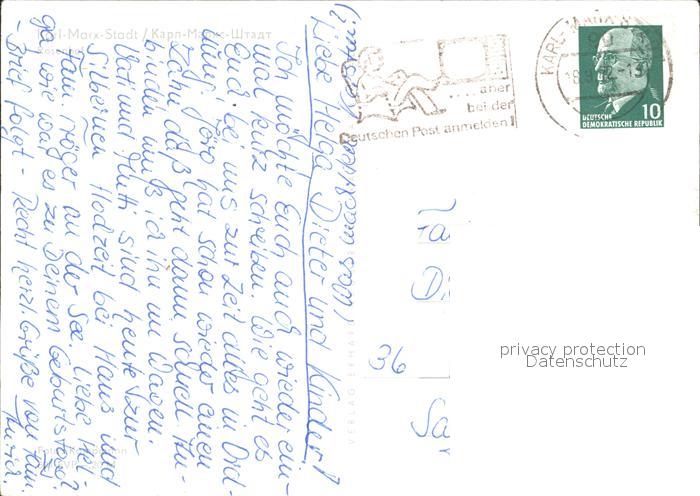 Karl-Marx-Stadt / Карл-Маркс-Штадт
Rosenhof
Liebe Helga, Dieter und Kinder!
Ich möchte Euch auch wieder ein-
mal kurz schreiben. Wie geht es
Euch, bei uns zur Zeit alles in Ord-
nung. Jörg hat schon wieder einen
Zahn, daß geht dann schnell. An-
binden muß ich ihn im Wagen.
Vati und Mutti sind heute zur
Silbernen Hochzeit bei Hans und
Fam. Höger an der See. Liebe Hel-
ga, wie war es zu Deinem Geburtstag?
- Brief folgt - Recht herzl. Grüße von
was machen
VERLAG ERHARD
.... aber
bei der
Deutschen Post anmelden!
KARL-MARX-
10
DEUTSCHE
DEMOKRATISCHE REPUBLIK
36
privacy protection
Datenschutz